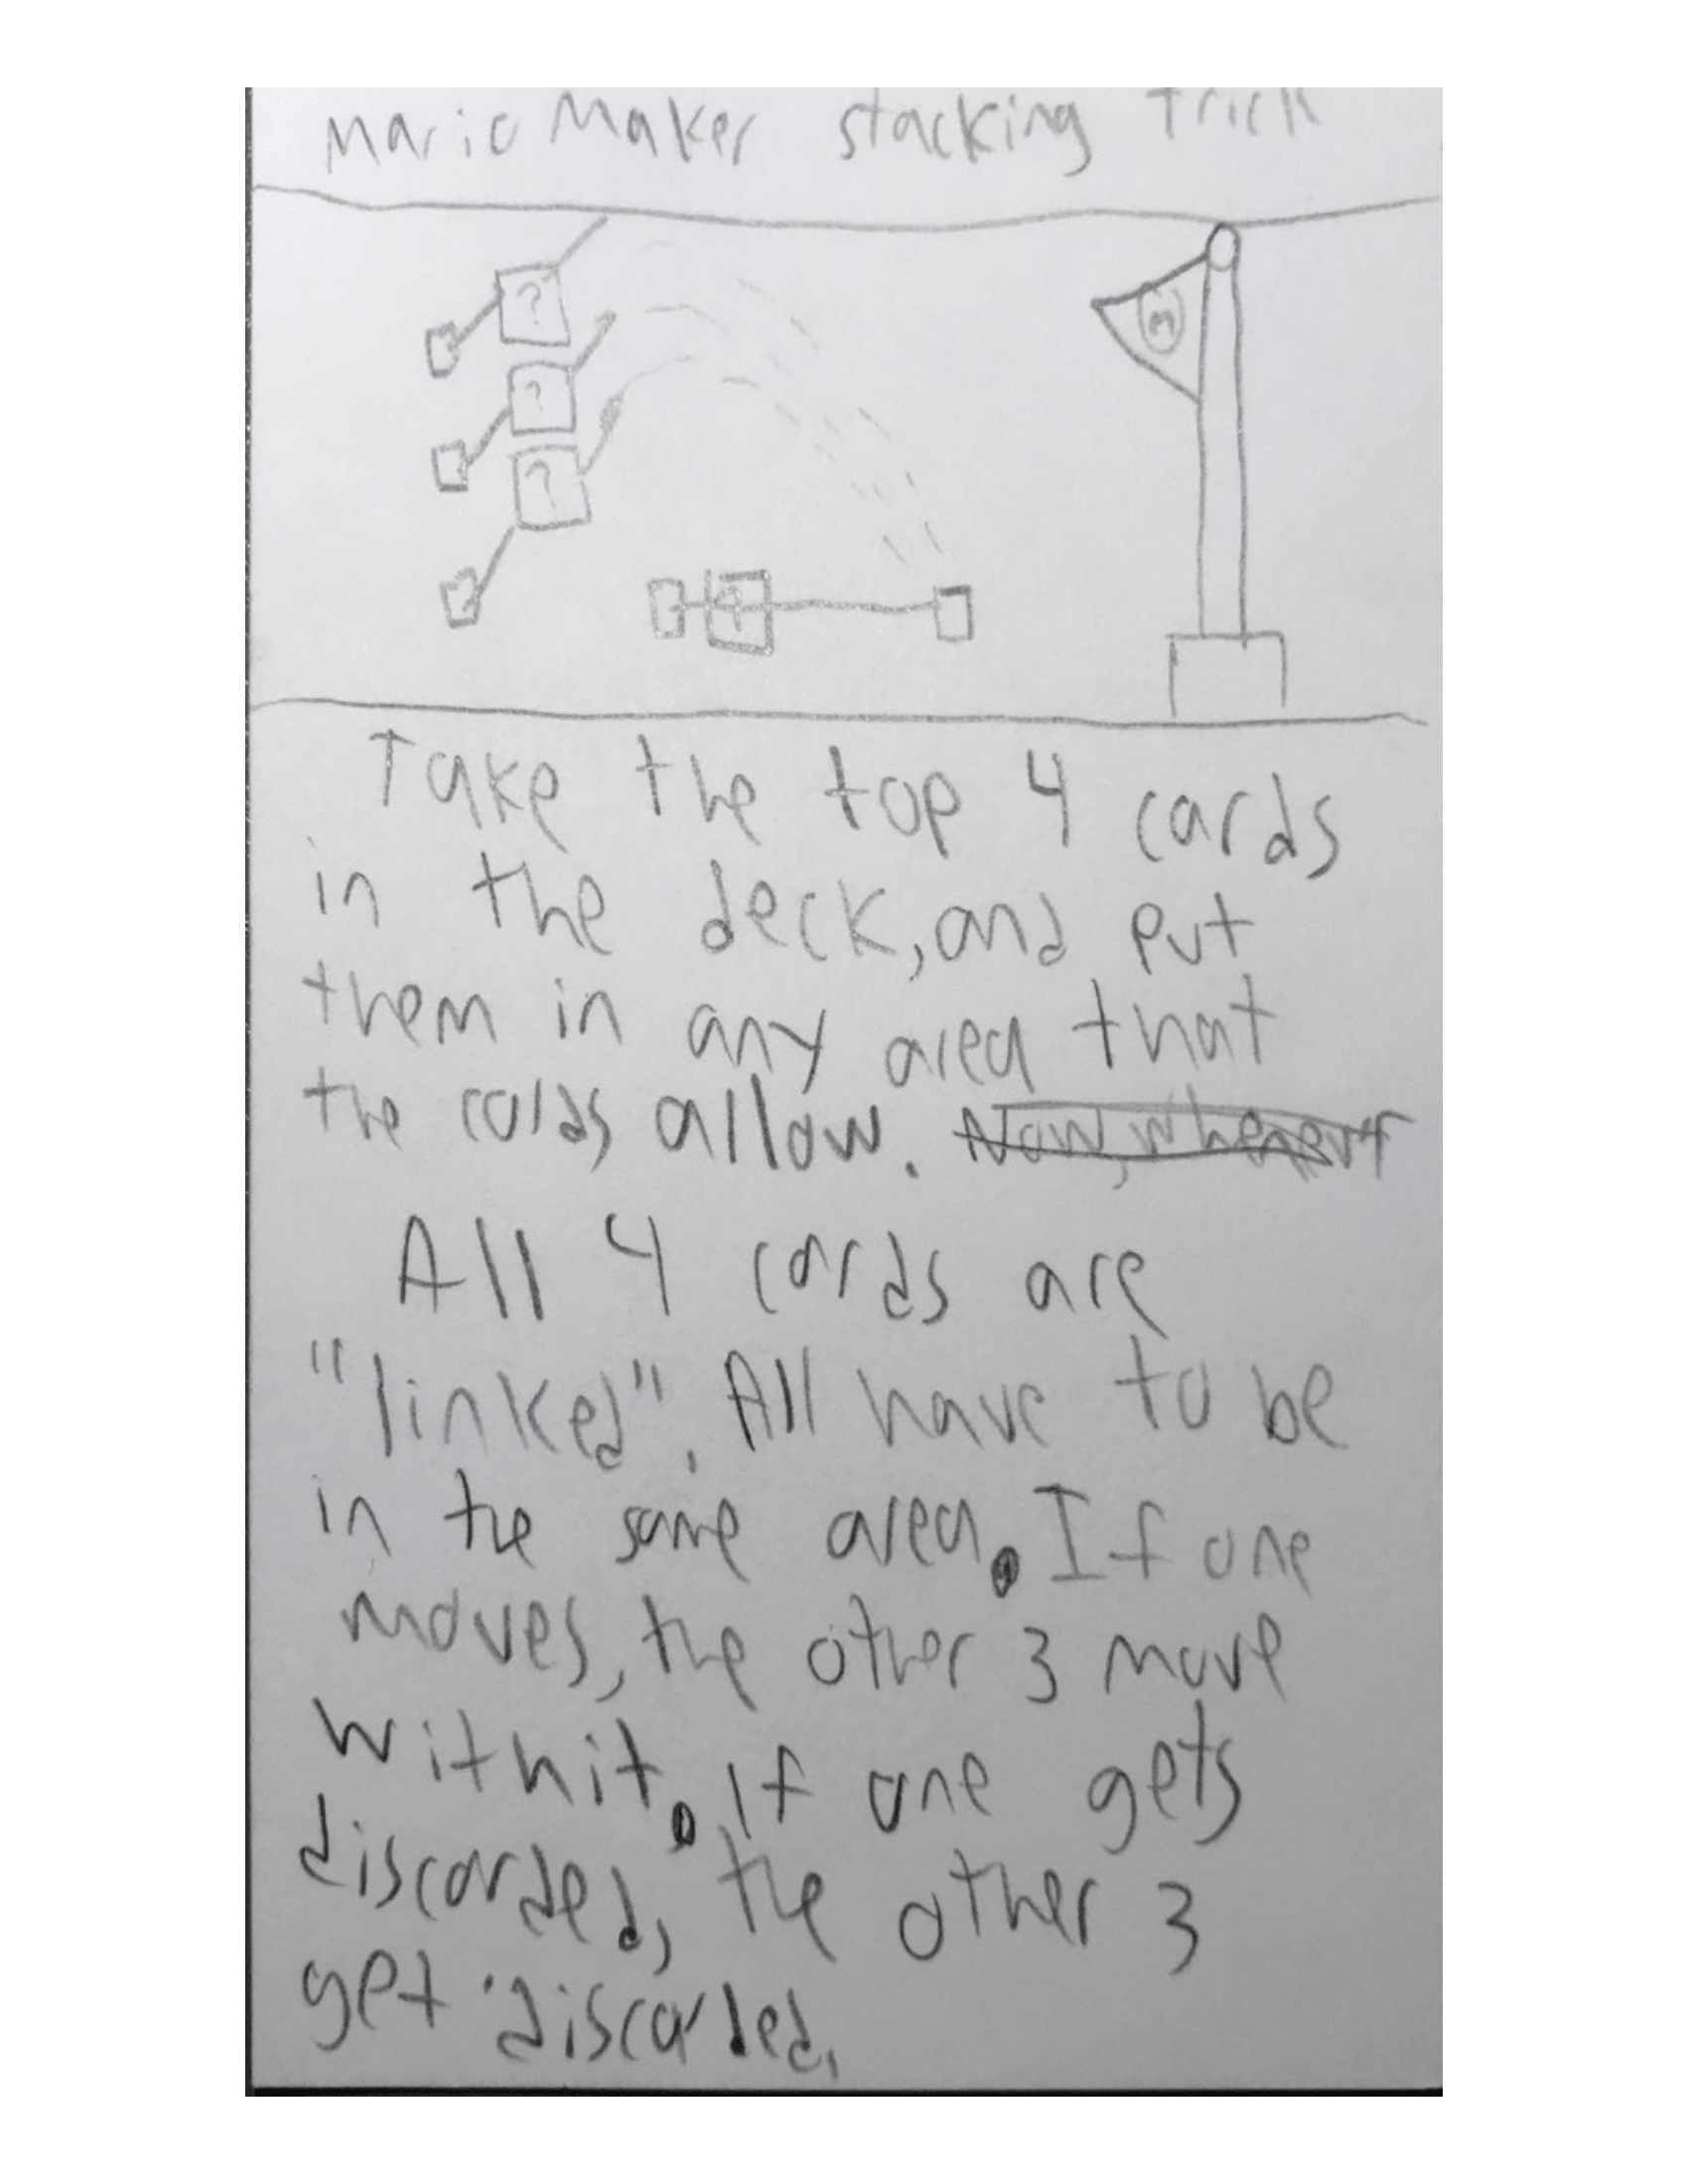 Mario Maker stacking Trick
?
?
?
?
M
Take the top 4 cards
in the deck, and put
them in any area that
the cards allow. Now, whenever
All 4 cards are
"linked". All have to be
in the same area. If one
moves, the other 3 move
with it. If one gets
discarded, the other 3
get discarded.